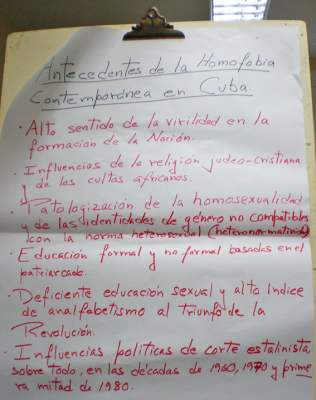 Antecedentes de la Homofobia
Contemporánea en Cuba.
· Alto sentido de la virilidad en la
formacion de la Nación.
· Influencias de la religion judeo-cristiana
y de los cultos africanos.
· Patologización de la homosexualidad
y de las identidades de género no compatibles
con la norma heterosexual (heteronormatividad)
· Educación formal y no formal basadas en el
patriarcado.
· Deficiente educación sexual y alto Indice
de analfabetismo al Triunfo de la
Revolución.
· Influencias politicas de corte estalinista,
sobre todo, en las décadas de 1960, 1970 y prime
ra mitad de 1980.